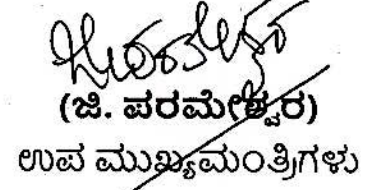 (ಜಿ. ಪರಮೇಶ್ವರ)
ಉಪ ಮುಖ್ಯಮಂತ್ರಿಗಳು